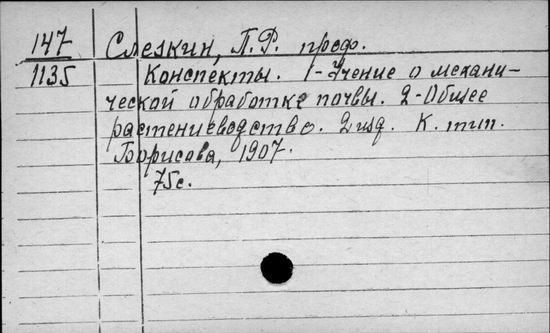 147 Слезкин, П.Р. проф.
1135 Конспекты. 1-Учение о механи-
ческой обработке почвы. 2-Общее
растениеводство. 2 изд. К. тип.
Борисова, 1907.
75с.